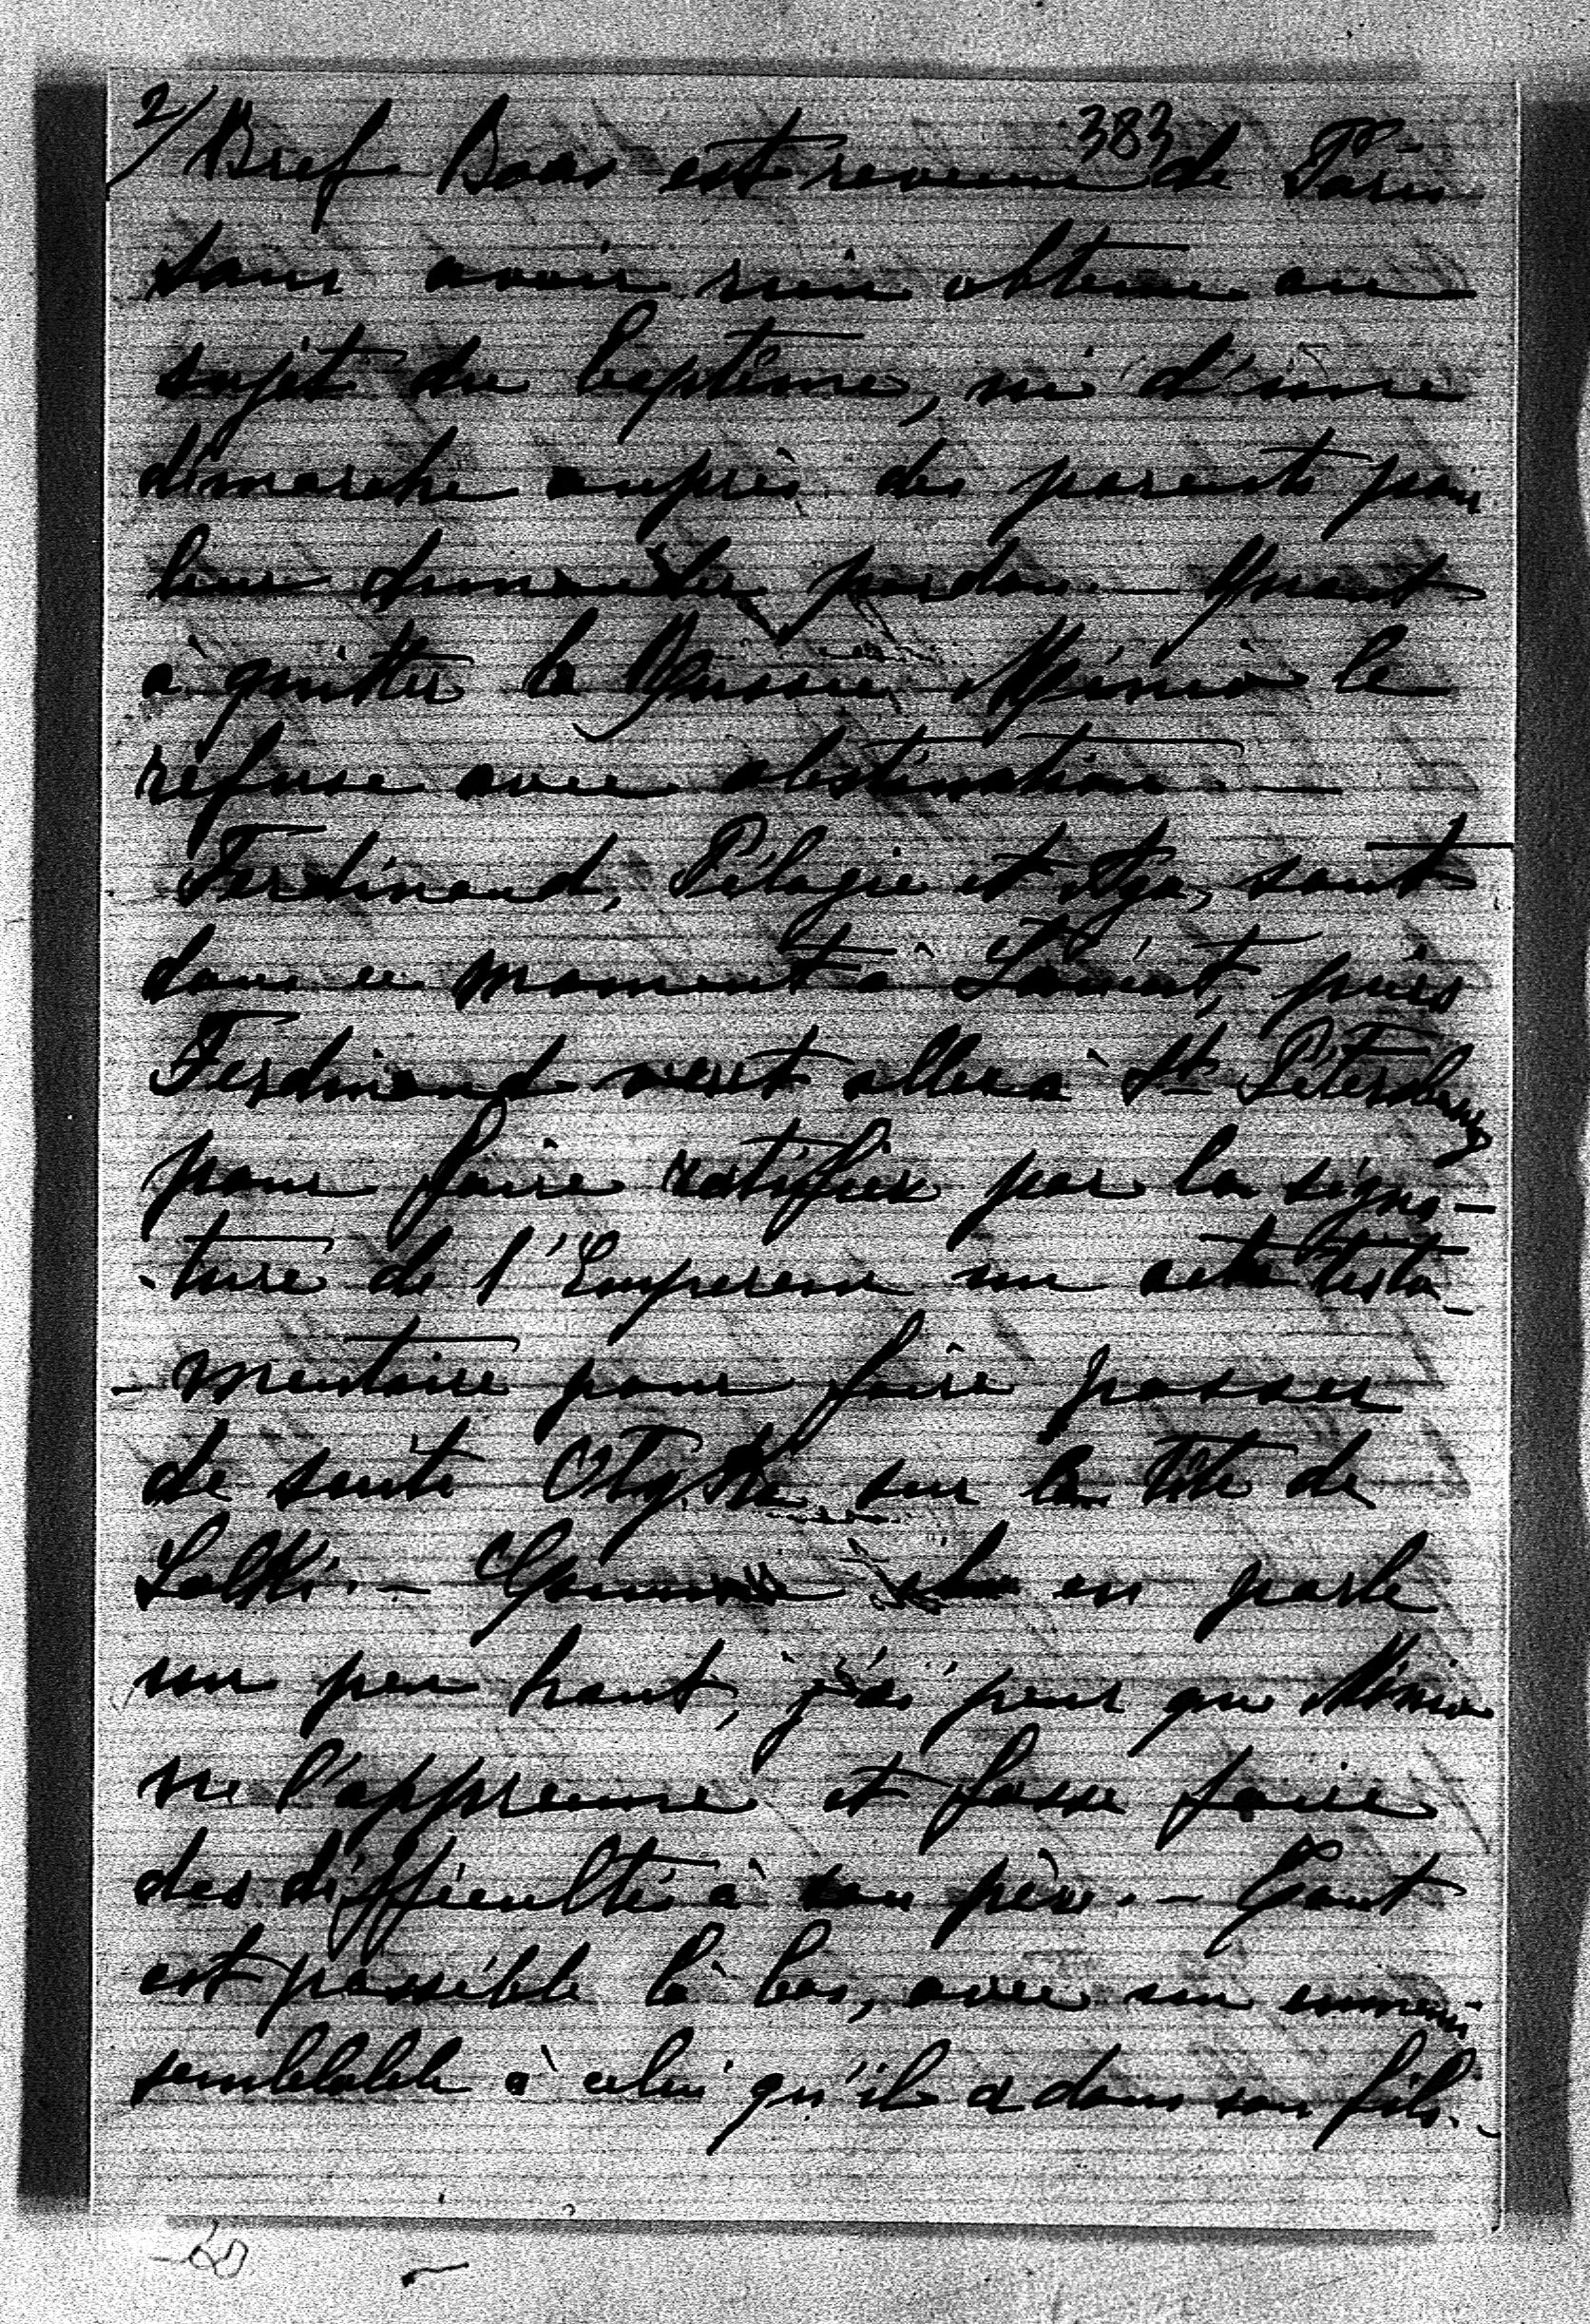 2/ 383
Bref Boas est revenu de Paris
sans avoir rien obtenu au
sujet du baptême, ni d'une
démarche auprès des parents pour
leur demander pardon. — Quant
à quitter la Russie, Minio le
refuse avec obstination. —
Ferdinand, Pélagie et Aga, sont
dans ce moment à , puis
Ferdinand veut aller à St Pétersbourg
pour faire ratifier par la signa-
-ture de l'Empereur un acte testa-
-mentaire pour faire passer
de suite Otyka sur la tête de
Lolki. — Comme on en parle
un peu haut, j'ai peur que Minio
ne l'apprenne et fasse faire
des difficultés à son père. — Tout
est possible là bas, avec un ennemi
semblable à celui qu'il a dans son fils. -